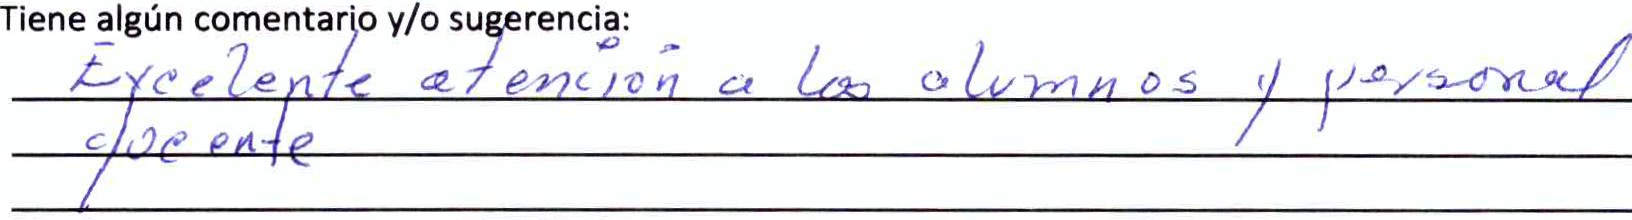 Tiene algún comentario y/o sugerencia:
Excelente atención a los alumnos y personal
docente